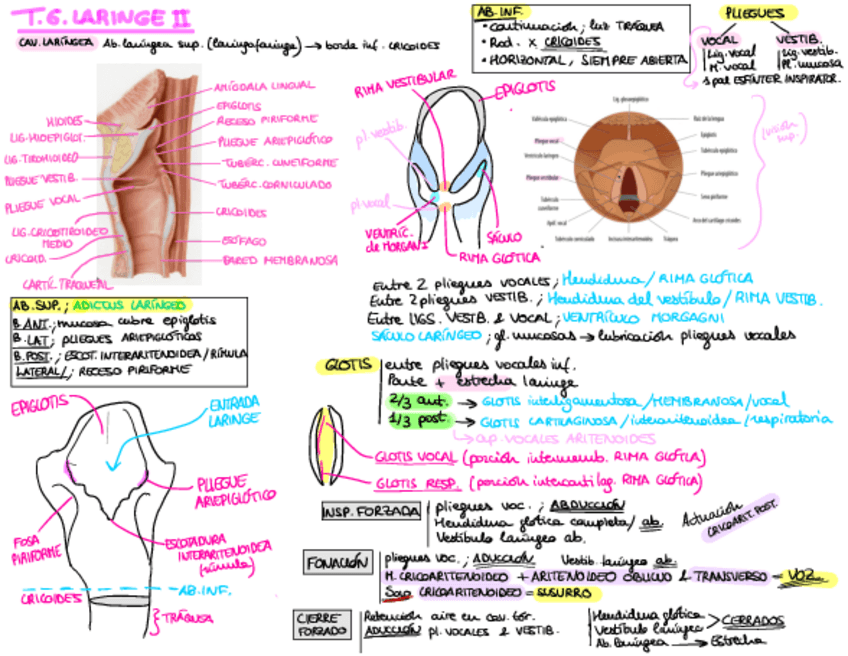 T.6. LARINGE II
CAV. LARÍNGEA Ab. laríngea sup. (laringofaringe) → borde inf. CRICOIDES
AB. INF.
• Continuación; luz TRÁQUEA
• Rod. x CRICOIDES
• HORIZONTAL, SIEMPRE ABIERTA
PLIEGUES
VOCAL
Lig. vocal
M. vocal
VESTIB.
Lig. vestib.
Pl. mucosa
1 par ESFÍNTER INSPIRATOR.
AMÍGDALA LINGUAL
EPIGLOTIS
RECESO PIRIFORME
PLIEGUE ARIEPIGLÓTICO
TUBÉRC. CUNEIFORME
TUBÉRC. CORNICULADO
CRICOIDES
ESÓFAGO
PARED MEMBRANOSA
HIOIDES
LIG. HIOEPIGLOT.
LIG. TIROHIOIDEO
PLIEGUE VESTIB.
PLIEGUE VOCAL
LIG. CRICOTIROIDEO
MEDIO
CRICOID.
CARTÍL. TRAQUEAL
RIMA VESTIBULAR
EPIGLOTIS
pl. vestib.
pl. vocal
VENTRÍC.
de MORGANI
SÁCULO
RIMA GLÓTICA
Lig. glosoepiglótico
Valécula epiglótica
Pliegue vocal
Ventrículo laríngeo
Pliegue vestibular
Tubérculo cuneiforme
Apóf. vocal
Tubérculo corniculado
Incisura interaritenoidea
Tráquea
Raíz de la lengua
Epiglotis
Tubérculo epiglótico
Pliegue ariepiglótico
Seno piriforme
Arco del cartílago cricoides
(visión sup.)
Entre 2 pliegues VOCALES; Hendidura/ RIMA GLÓTICA
Entre 2 pliegues VESTIB.; Hendidura del vestíbulo/ RIMA VESTIB.
Entre LIGS. VESTIB. & VOCAL; VENTRÍCULO MORGAGNI
SÁCULO LARÍNGEO; gl. mucosas → lubricación pliegues vocales
AB. SUP.; ADICTUS LARÍNGEO
B. ANT.; mucosa cubre epiglotis
B. LAT; PLIEGUES ARIEPIGLÓTICOS
B. POST.; ESCOT. INTERARITENOIDEA/RÍMULA
LATERAL/; RECESO PIRIFORME
GLOTIS
entre pliegues vocales inf.
Parte + estrecha laringe
2/3 ant. → GLOTIS interligamentosa/MEMBRANOSA/vocal
1/3 post. → GLOTIS CARTILAGINOSA/interaritenoidea/respiratoria
ap. VOCALES ARITENOIDES
GLOTIS VOCAL (porción intermemb. RIMA GLÓTICA)
GLOTIS RESP. (porción intercartilag. RIMA GLÓTICA)
EPIGLOTIS
ENTRADA
LARINGE
PLIEGUE
ARIEPIGLÓTICO
FOSA
PIRIFORME
ESCOTADURA
INTERARITENOIDEA
(rímula)
AB. INF.
CRICOIDES
TRÁQUEA
INSP. FORZADA
pliegues voc.; ABDUCCIÓN
Hendidura glótica completa/ ab.
Vestíbulo laríngeo ab.
Actuación
CRICOARIT. POST.
FONACIÓN
pliegues voc.; ADUCCIÓN Vestib. laríngeo ab.
M. CRICOARITENOIDEO + ARITENOIDEO OBLICUO & TRANSVERSO = VOZ
Solo CRICOARITENOIDEO = SUSURRO
CIERRE
FORZADO
Retención aire en cav. tor.
ADUCCIÓN pl. VOCALES & VESTIB.
Hendidura glótica
Vestíbulo laríngeo > CERRADOS
Ab. laríngea → Estrecha